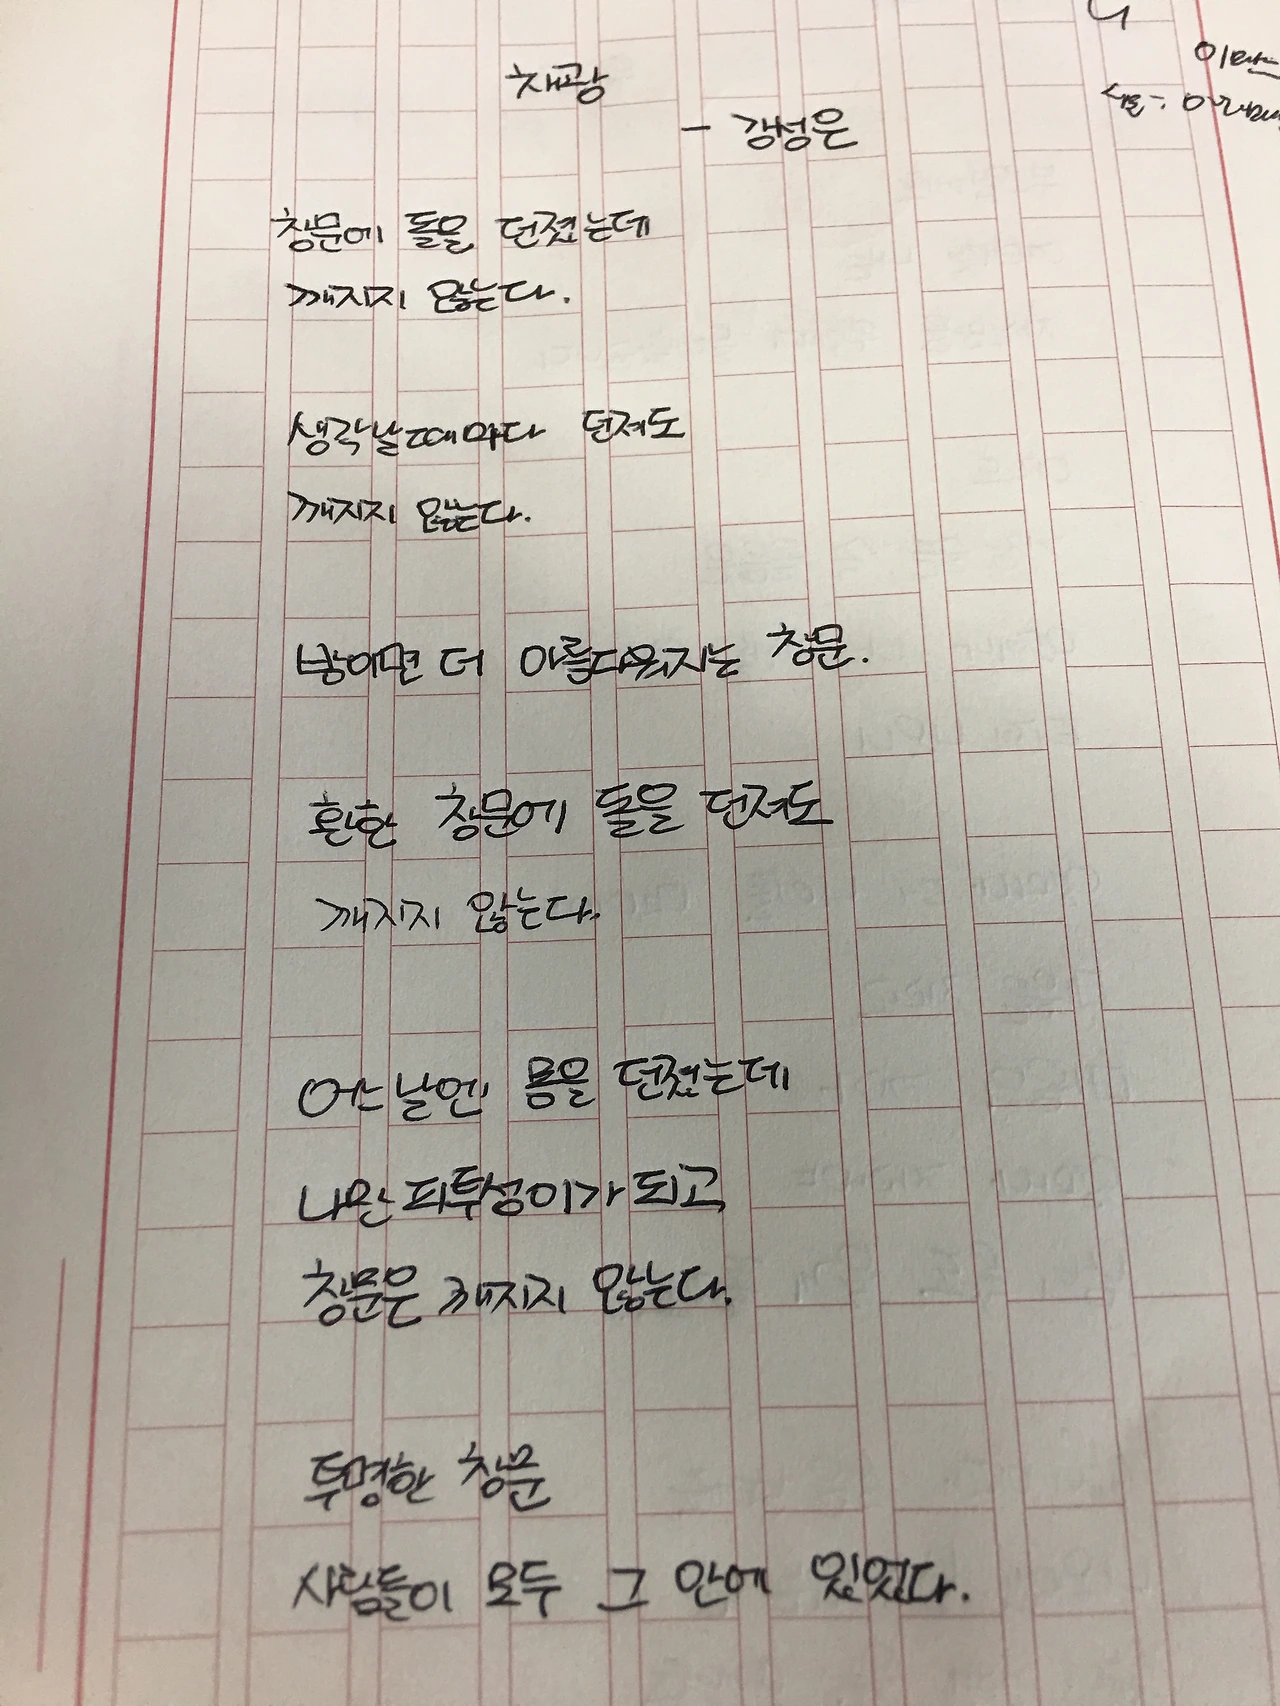 채광
- 강성은
창문에 돌을 던졌는데
깨지지 않는다.
생각날 때마다 던져도
깨지지 않는다.
밤이면 더 아름다워지는 창문.
환한 창문에 돌을 던져도
깨지지 않는다.
어느 날엔 몸을 던졌는데
나만 피투성이가 되고,
창문은 깨지지 않는다.
투명한 창문
사람들이 모두 그 안에 있었다.